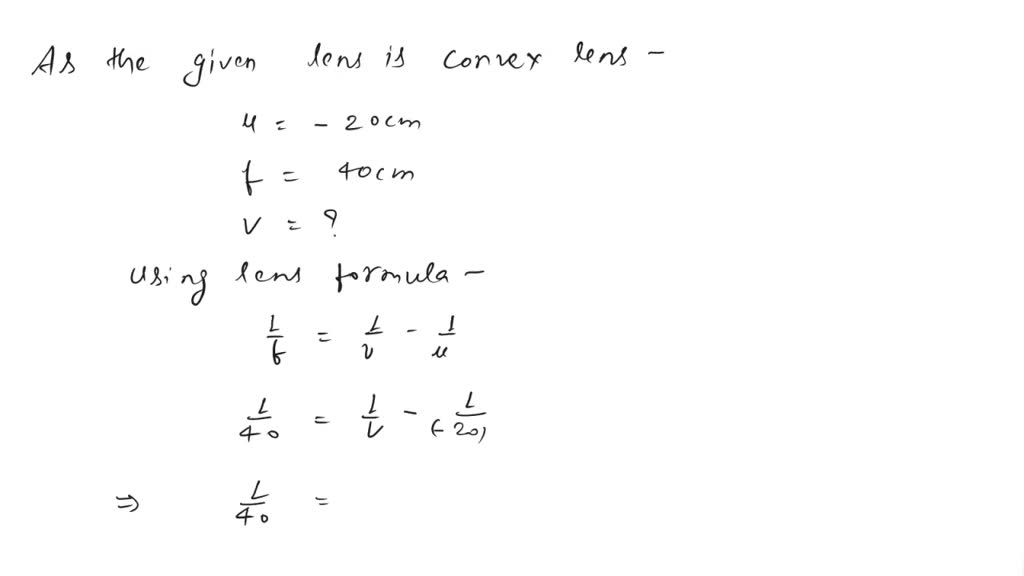 As the given lens is convex lens -
u = - 20cm
f = 40cm
v = ?
using lens formula -
1/f = 1/v - 1/u
1/40 = 1/v - 1/(-20)
⇒ 1/40 =